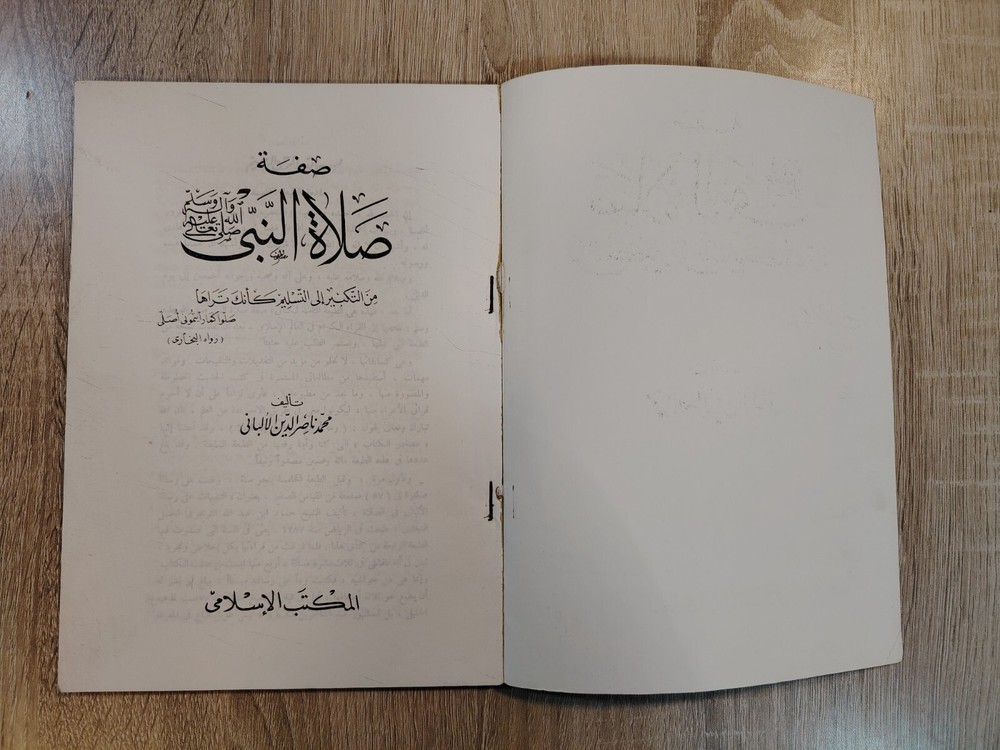 صفة
صَلاة النَّبيّ صلى الله تعالى عليه وآله وسلم
مِنَ التَّكبِير إلى التَّسْليم كَأنكَ تَرَاهَا
صَلّوا كما رأيتموني أصَلّي
(رواه البخاري)
تأليف
محمّد ناصر الدين الألباني
المكتَب الإسْلامي